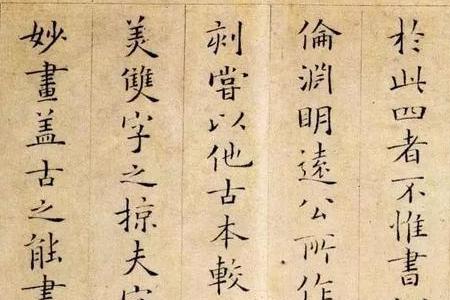 於此四者不惟書
倫淵明遠公所作
刻嘗以他古本較
美雙字之掠夫
妙畫盖古之能書